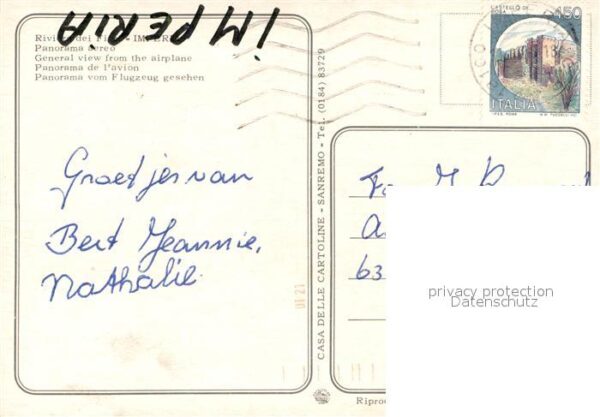 IMPERIA
Riviera dei Fiori - IMPERIA
Panorama aereo
General view from the airplane
Panorama de l'avion
Panorama vom Flugzeug gesehen
Groetjes van
Bert Jeannie,
Nathalie.
CASA DELLE CARTOLINE - SANREMO - Tel. (0184) 83729
CASTELLO DI
450
ITALIA
Fa. J.
63
privacy protection
Datenschutz
Riprod